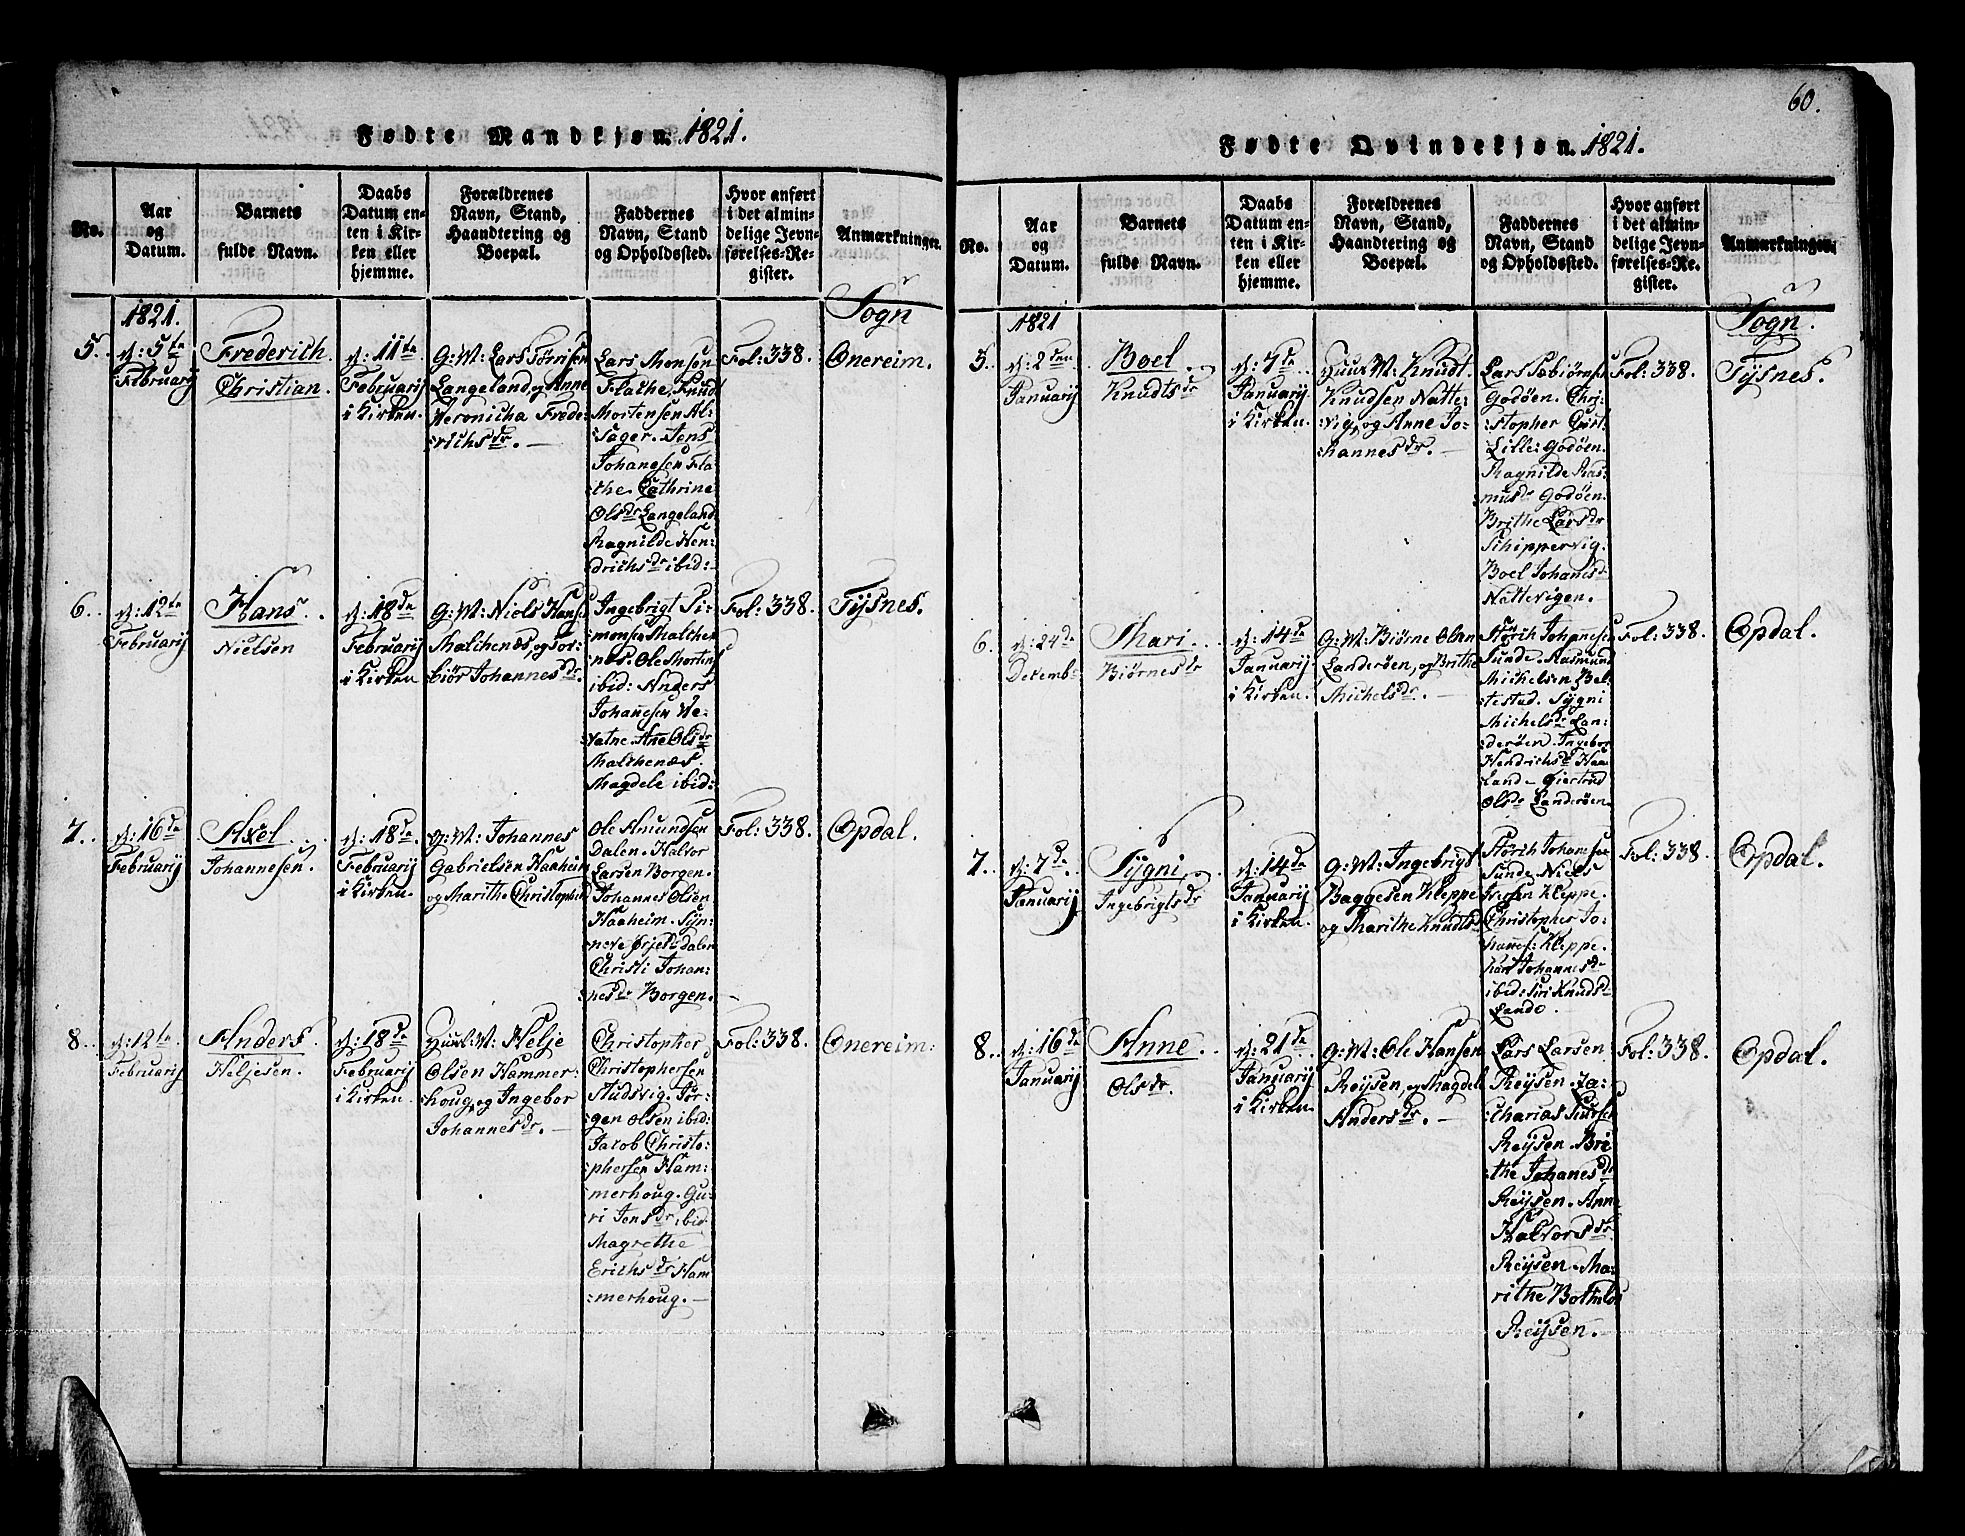 60.
Fødte Mandkjøn. 1821.
No.
Aar
og
Datum.
Barnets
fulde Navn.
Daabs
Datum en-
ten i Kir-
ken eller
hjemme.
Forældrenes
Navn, Stand,
Haandtering og
Boepæl.
Faddernes
Navn, Stand
og Opholdssted.
Hvor anført
i det almin-
delige Jevn-
førelses-Re-
gister.
Anmærkninger.
Sogn
1821.
5.
d: 5te
Februarij
Frederich
Christian.
d: 11te
Februarij
i Kirken.
G: M: Lars Tørrisen
Langeland, og Anne
Veronicha Frede:
:richsdr. —
Lars Monsen
Flathe, Knud
Mortensen Al:
:sager. Jens
Johanesen Fla
:the. Cathrine
Olsdr Langeland
Ragnilde Hen:
:drichsdr ibid:
Fol: 338.
Onereim.
6.
d: 12te
Februarij
Hans.
Nielsen
d: 18de
Februarij
i Kirken
G: M: Niels Hansen
Malchenæs, og Tor:
:biør Johannesdr.
Ingebrigt Si:
:monsen Malche
:næs. Ole Mortens
ibid: Anders
Johanesen We:
:vatne. Ane Olsdr
Malchenæs.
Magdele ibid:
Fol: 338.
Tysnes.
7.
d: 16de
Februarij
Axel
Johannesen
d: 18de
Februarij
i Kirken.
G: M: Johannes
Gabrielsen Haaheim
og Marithe Christophed
Ole Amundsen
Dalen. Halvor
Larsen Borgen.
Johannes Olsen
Haaheim. Syn:
:neve Ørjelsdalen
Christi Johan:
:nesdr Borgen. —
Fol: 338.
Opdal.
8.
d: 12te
Februarij
Anders.
Heljesen.
d: 18de
Februarij
i Kirken.
Huus: M: Helje
Olsen Hammer:
:houg, og Ingebor
Johannesdr. —
Christopher
Christophersen
Hudsvig. Tør:
:gen Olsen ibid:
Jacob Christo:
:phersen Ham:
:merhoug. Gu:
:ri Jensdr ibid
Magrethe
Erichsdr Ham
:merhoug. —
Fol: 338.
Onereim:
Fødte Qvindekjøn. 1821.
No.
Aar
og
Datum.
Barnets
fulde Navn.
Daabs
Datum en-
ten i Kir-
ken eller
hjemme.
Forældrenes
Navn, Stand,
Haandtering og
Boepæl.
Faddernes
Navn, Stand
og Opholdssted.
Hvor anført
i det almin-
delige Jevn-
førelses-Re-
gister.
Anmærkninger.
Sogn.
1821
5.
d: 2den
Januarij
Boel
Knudtsdr
d: 7de
Januarij
i Kirken.
Huus: M: Knudt
Knudsen Natte:
:vig, og Anne Jo:
:hannesdr. —
Lars Sebiørns
Godøen. Chri:
:stopher
Lille: Godøen.
Ragnilde Ras:
:musdr Godøen.
Brithe Larsdr
Schippervig.
Boel Johanesdr
Nattevigen. —
Fol: 338.
Tysnes.
6.
d: 24de
Decembr
Mari.
Biørnesdr
d: 14de
Januarij
i Kirken.
G: M: Biørne Olsen
Landerøen, og Brithe
Michelsdr. —
Størch Johannesen
Sunde. Rasmund
Michelsen Bel:
:testad. Sygni
Michelsdr Lan:
:derøen. Ingebor
Hendrichsdr Haa
:land — Giertrud
Olsdr Landerøen.
Fol: 338.
Opdal.
7.
d: 7de
Januarij
Sygni,
Ingebrigtsdr
d: 14de
Januarij
i Kirken.
G: M: Ingebrigt
Baggesen Kleppe
og Marithe Knudtsdr
Størch Johanesen
Sunde Niels
Kleppe.
Christopher Jo:
:hannes: Kleppe.
Kari Johannesdr
ibid: Siri Knudsdr
Lande.
Fol: 338.
Opdal.
8.
d: 16de
Januarij
Anne.
Olsdr.
d: 21de
Januarij
i Kirken.
G: M: Ole Hansen
Reysen, og Magdele
Andersdr. —
Lars Larsen
Reysen. Za:
:charias
Reysen. Bri
:the Johanesdr
Reysen. Anne
Halvorsdr
Reysen. Ma:
:rithe Bothilds
Reysen. —
Fol: 338.
Opdal.